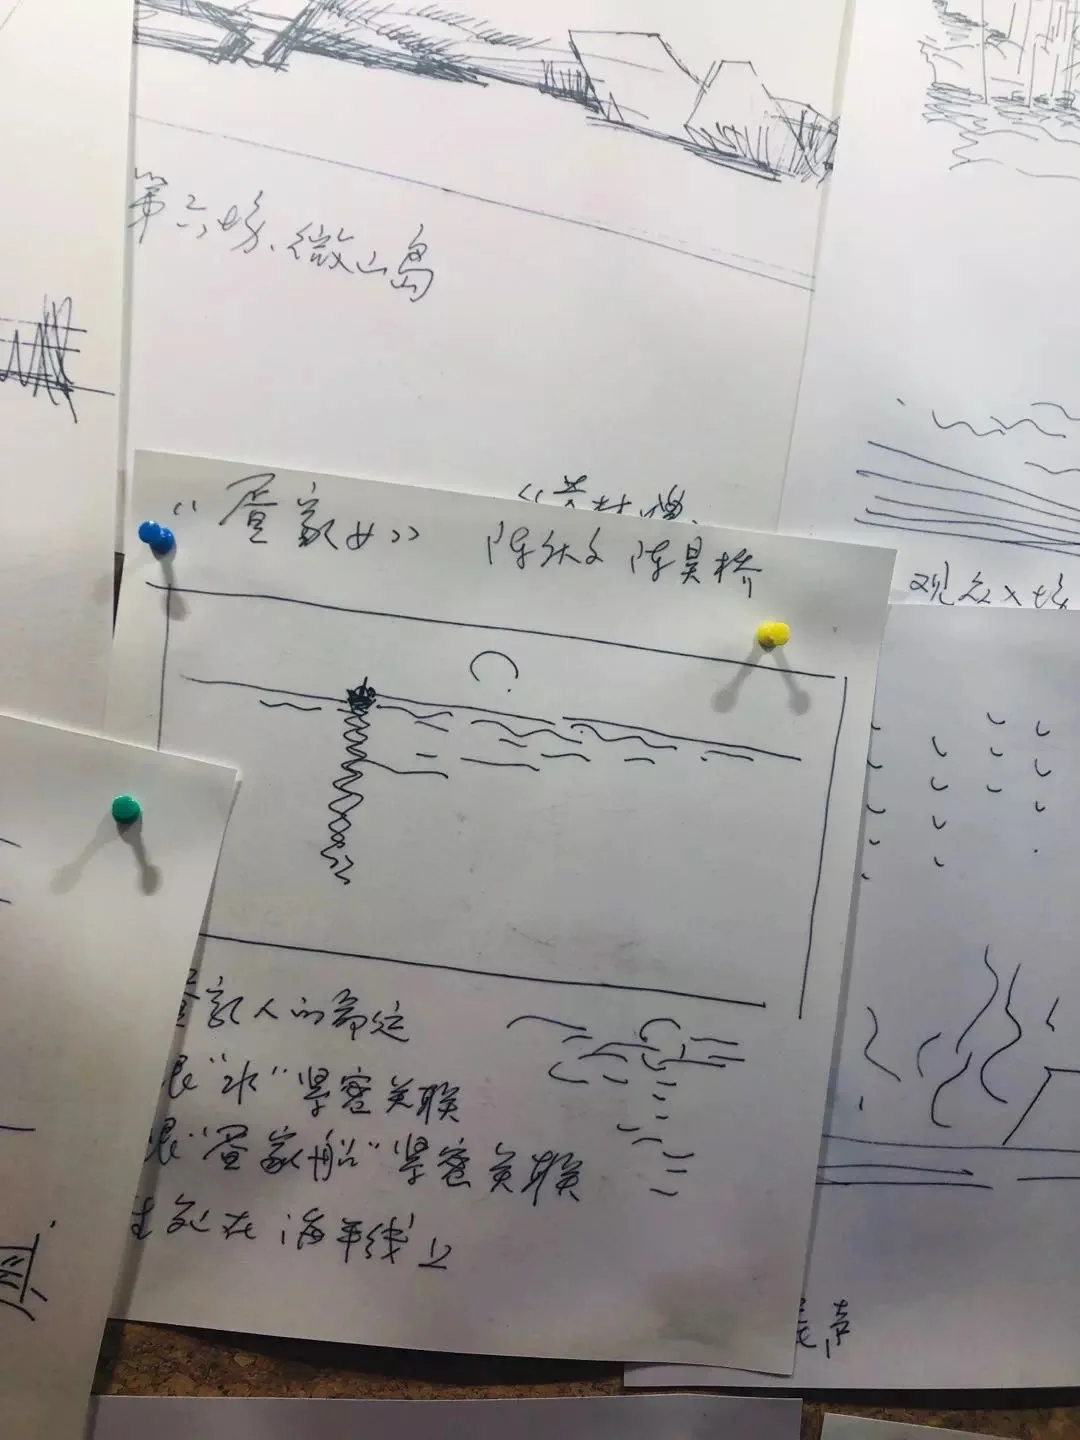 第六场、微山岛
《疍家女》 陈 陈昊桥
观众入场
家人的
跟“水”紧密关联
跟“疍家船”紧密关联
在海平线上
声